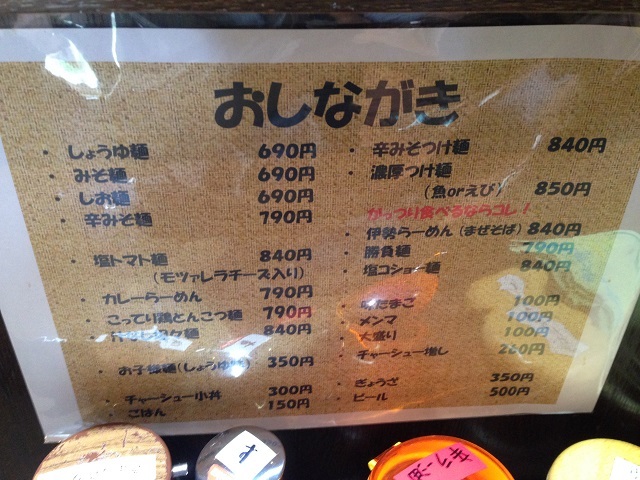 おしながき
・しょうゆ麺 690円
・みそ麺 690円
・しお麺 690円
・辛みそ麺 790円
・塩トマト麺 840円
(モツァレラチーズ入り)
・カレーらーめん 790円
・こってり鶏とんこつ麺 790円
840円
・お子様麺(しょうゆ味) 350円
・チャーシュー小丼 300円
・ごはん 150円
・辛みそつけ麺 840円
・濃厚つけ麺
(魚orえび) 850円
がっつり食べるならコレ!
・伊勢らーめん(まぜそば) 840円
・勝負麺 790円
・塩コショー麺 840円
・味だまご 100円
・メンマ 100円
・大盛り 100円
・チャーシュー増し 260円
・ぎょうざ 350円
・ビール 500円